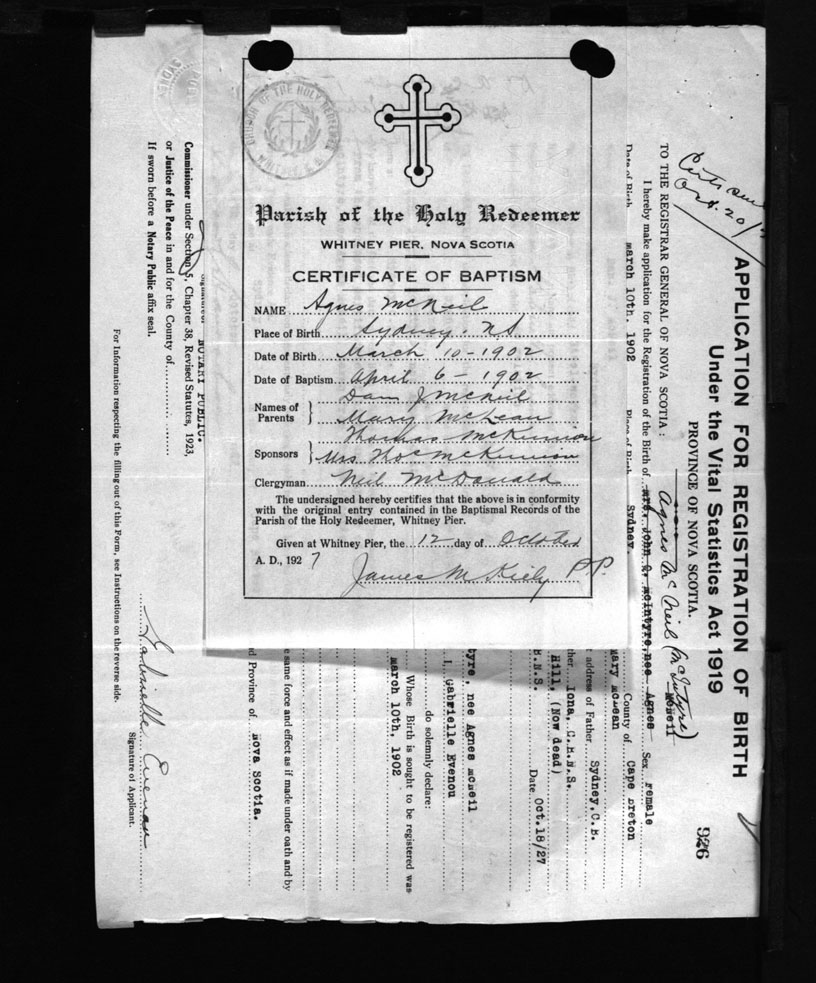 CHURCH OF THE HOLY REDEEMER
Parish of the Holy Redeemer
WHITNEY PIER, NOVA SCOTIA
CERTIFICATE OF BAPTISM
NAME Agnes McNeil
Place of Birth Sydney. NS
Date of Birth March 10-1902
Date of Baptism April 6-1902
Names of Parents } Dan J McNeil
Mary McLean
Sponsors } Thomas McKinnon
Mrs Thos McKinnon
Clergyman Neil McDonald
The undersigned hereby certifies that the above is in conformity
with the original entry contained in the Baptismal Records of the
Parish of the Holy Redeemer, Whitney Pier.
Given at Whitney Pier, the 12 day of October
A. D., 1927
James M Kiely P.P.
926
APPLICATION FOR REGISTRATION OF BIRTH
Under the Vital Statistics Act 1919
PROVINCE OF NOVA SCOTIA.
Oct. 20/
TO THE REGISTRAR GENERAL OF NOVA SCOTIA :
Agnes McNeil (McIntyre)
I hereby make application for the Registration of the Birth of Mrs. John Q. McIntyre, nee Agnes McNeil Sex Female
Date of Birth March 10th. 1902 Place of Birth Sydney. County of Cape Breton
Mary McLean
address of Father Sydney, C.B.
Iona, C.B.N.S.
Hill, (Now dead)
B.N.S. Date Oct.18/27
I, Gabrielle Evenou
do solemnly declare:
tyre, nee Agnes McNeil
Whose Birth is sought to be registered was
March 10th. 1902
e same force and effect as if made under oath and by
d Province of Nova Scotia.
NOTARY PUBLIC.
Commissioner under Section 5, Chapter 38, Revised Statutes, 1923,
or Justice of the Peace in and for the County of
If sworn before a Notary Public affix seal.
Gabrielle Evenou
Signature of Applicant.
For Information respecting the filling out of this Form, see Instructions on the reverse side.